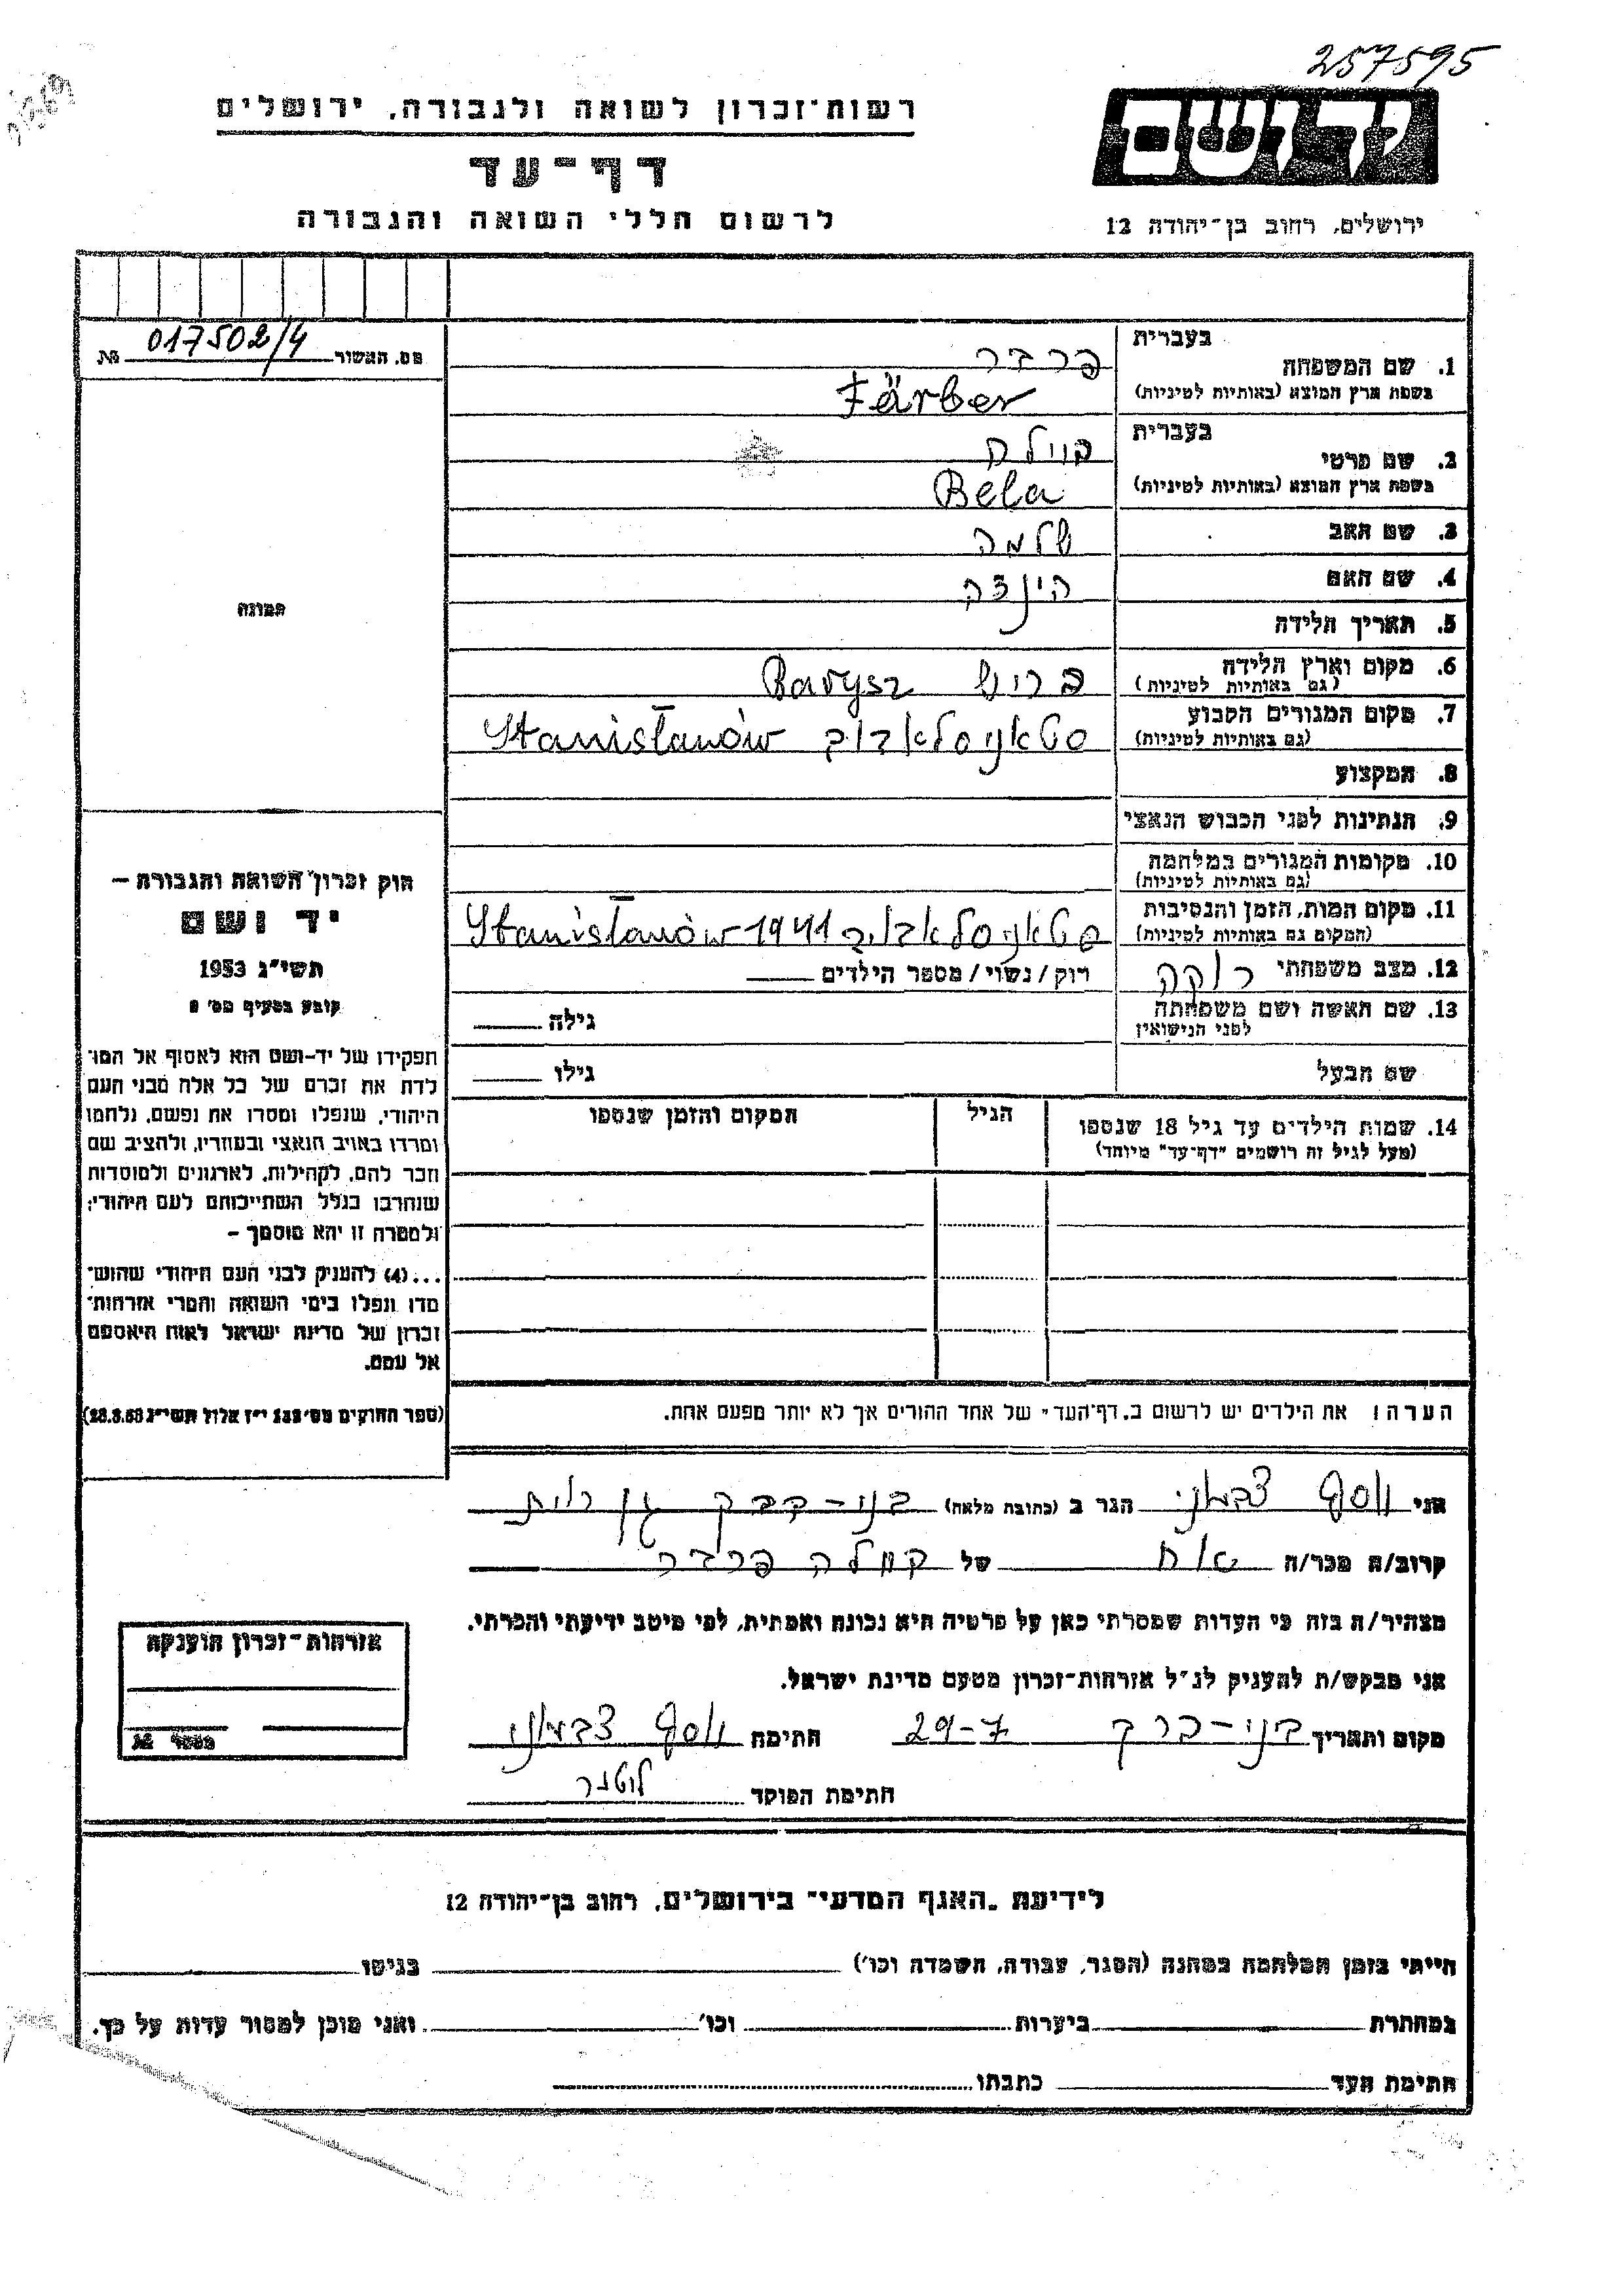 257595
יד ושם
רשות-זכרון לשואה ולגבורה, ירושלים
דף-עד
לרשום חללי השואה והגבורה
ירושלים, רחוב בן-יהודה 12
מס. האשור 017502/4 №
בעברית
1. שם המשפחה פרבר
בשפת ארץ המוצא (באותיות לטיניות) Färber
בעברית
2. שם פרטי ביילה
בשפת ארץ המוצא (באותיות לטיניות) Bela
3. שם האב שלמה
4. שם האם הינצה
5. תאריך הלידה
6. מקום וארץ הלידה בריש Barysz
(גם באותיות לטיניות)
7. מקום המגורים הקבוע סטאניסלאבוב Stanisławów
(גם באותיות לטיניות)
8. המקצוע
9. הנתינות לפני הכבוש הנאצי
10. מקומות המגורים במלחמה
(גם באותיות לטיניות)
11. מקום המות, הזמן והנסיבות סטאניסלאבוב 1941 Stanisławów
(המקום גם באותיות לטיניות)
12. מצב משפחתי רווקה רוק/נשוי/מספר הילדים
13. שם האשה ושם משפחתה גילה
לפני הנישואין
שם הבעל גילו
14. שמות הילדים עד גיל 18 שנספו הגיל המקום והזמן שנספו
(מעל לגיל זה רושמים "דף-עד" מיוחד)
הערה: את הילדים יש לרשום ב"דף-העד" של אחד ההורים אך לא יותר מפעם אחת.
תמונה
חוק זכרון השואה והגבורה –
יד ושם
תשי"ג 1953
קובע בסעיף מס' 2
תפקידו של יד-ושם הוא לאסוף אל המו-
לדת את זכרם של כל אלה מבני העם
היהודי, שנפלו ומסרו את נפשם, נלחמו
ומרדו באויב הנאצי ובעוזריו, ולהציב שם
וזכר להם, לקהילות, לארגונים ולמוסדות
שנחרבו בגלל השתייכותם לעם היהודי;
ולמטרה זו יהא מוסמך –
...(4) להעניק לבני העם היהודי שהוש-
מדו ונפלו בימי השואה והמרי אזרחות-
זכרון של מדינת ישראל לאות היאספם
אל עמם.
(ספר החוקים מס' 132 י"ז אלול תשי"ג 28.8.53)
אני יוסף צבעוני הגר ב (כתובת מלאה) בני-ברק
קרוב/ה מכר/ה אח של פרבר
מצהיר/ה בזה כי העדות שמסרתי כאן על פרטיה היא נכונה ואמתית, לפי מיטב ידיעתי והכרתי.
אני מבקש/ת להעניק לנ"ל אזרחות-זכרון מטעם מדינת ישראל.
מקום ותאריך בני-ברק 29-7 חתימה יוסף צבעוני
חתימת הפוקד
אזרחות-זכרון הוענקה
מספר №
לידיעת "האגף המדעי" בירושלים, רחוב בן-יהודה 12
הייתי בזמן המלחמה במחנה (הסגר, עבודה, השמדה וכו') בגיטו
במחתרת ביערות וכו' ואני מוכן למסור עדות על כך.
חתימת העד כתבתו